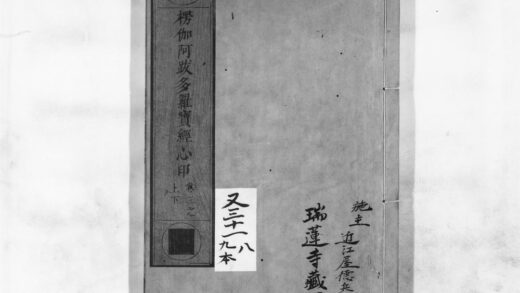 楞伽阿跋多羅寶經心印
卷三之
上下
施主 近江屋德兵
瑞蓮寺藏
又三十一八
九本